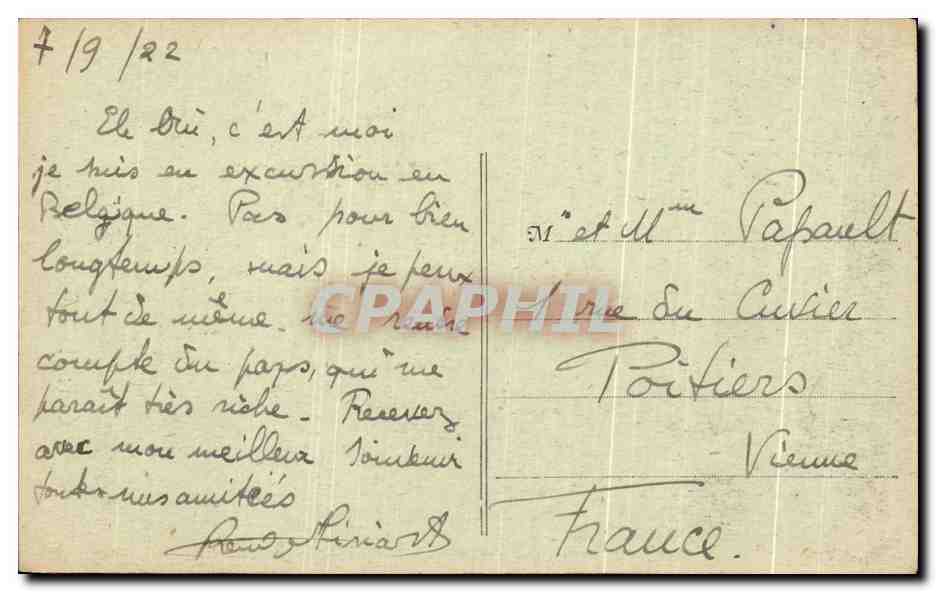 7/9/22
Eh bien, c'est moi
je suis en excursion en
Belgique. Pas pour bien
longtemps, mais je peux
tout de même me rendre
compte du pays, qui me
paraît très riche. Recevez
avec mon meilleur souvenir
toutes mes amitiés
Mr et Mme Papault
1 rue du Cuvier
Poitiers
Vienne
France.
CPAPHIL